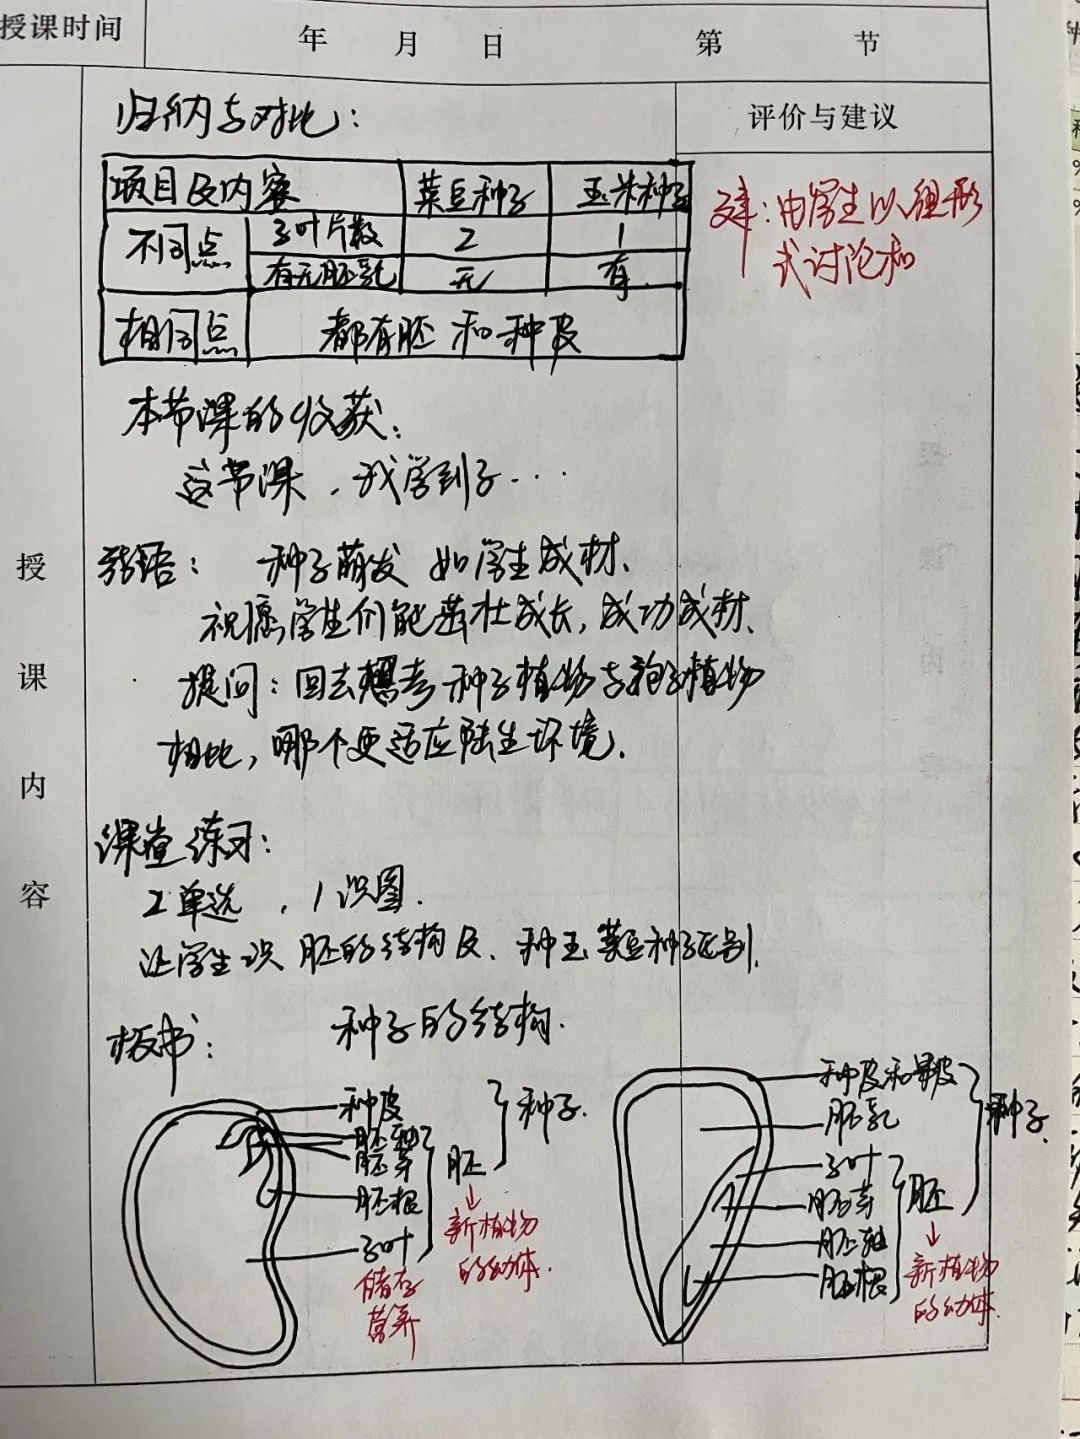 授课时间
年 月 日 第 节
评价与建议
归纳与对比:
项目及内容 菜豆种子 玉米种子
不同点 子叶片数 2 1
有无胚乳 无 有
相同点 都有胚和种皮
建:由学生以组形
式讨论和
本节课的收获:
这节课,我学到了...
结语: 种子萌发 如学生成材、
祝愿学生们能茁壮成长,成功成材、
提问:回去想考种子植物与孢子植物
相比,哪个更适应陆生环境.
授课内容
课堂练习:
2单选 , 1识图.
让学生识 胚的结构及、种玉菜豆种子区别.
板书: 种子的结构.
种皮
胚轴
胚芽
胚根
子叶
储存
营养
胚
新植物
的幼体.
种子.
种皮和果皮
胚乳
子叶
胚芽
胚轴
胚根
胚
新植物
的幼体.
种子.